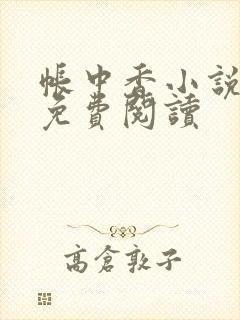 帳中香小說
免費閱讀
高倉敦子